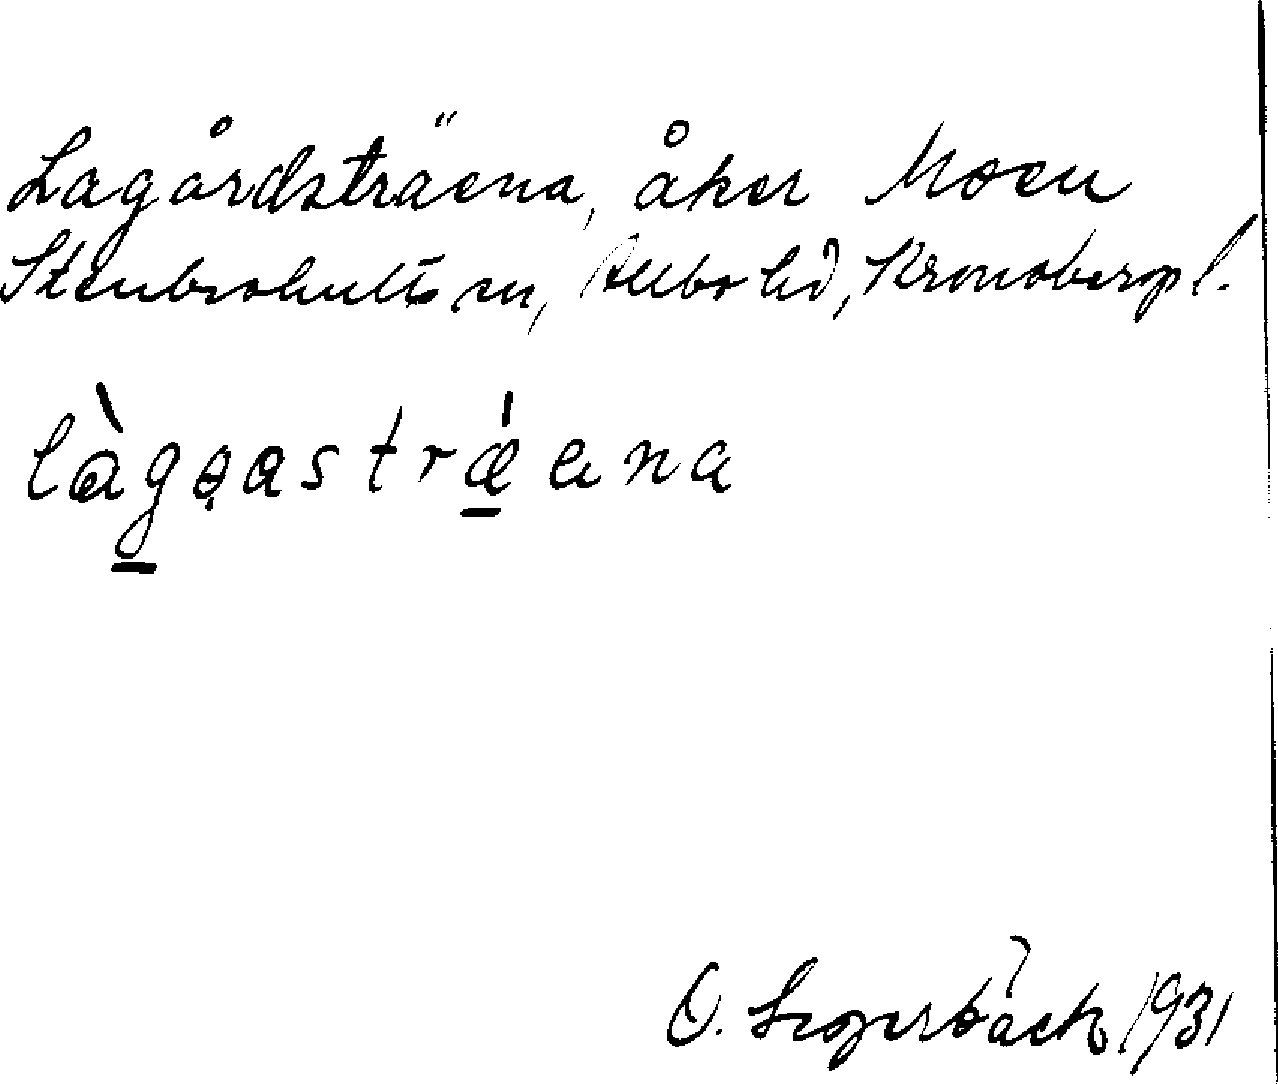 Lagårdsträena, åker Moen
Stenbrohults sn, Allbo hd, Kronobergs l.
làgǫasträ́ena
O. Segerbäck 1931